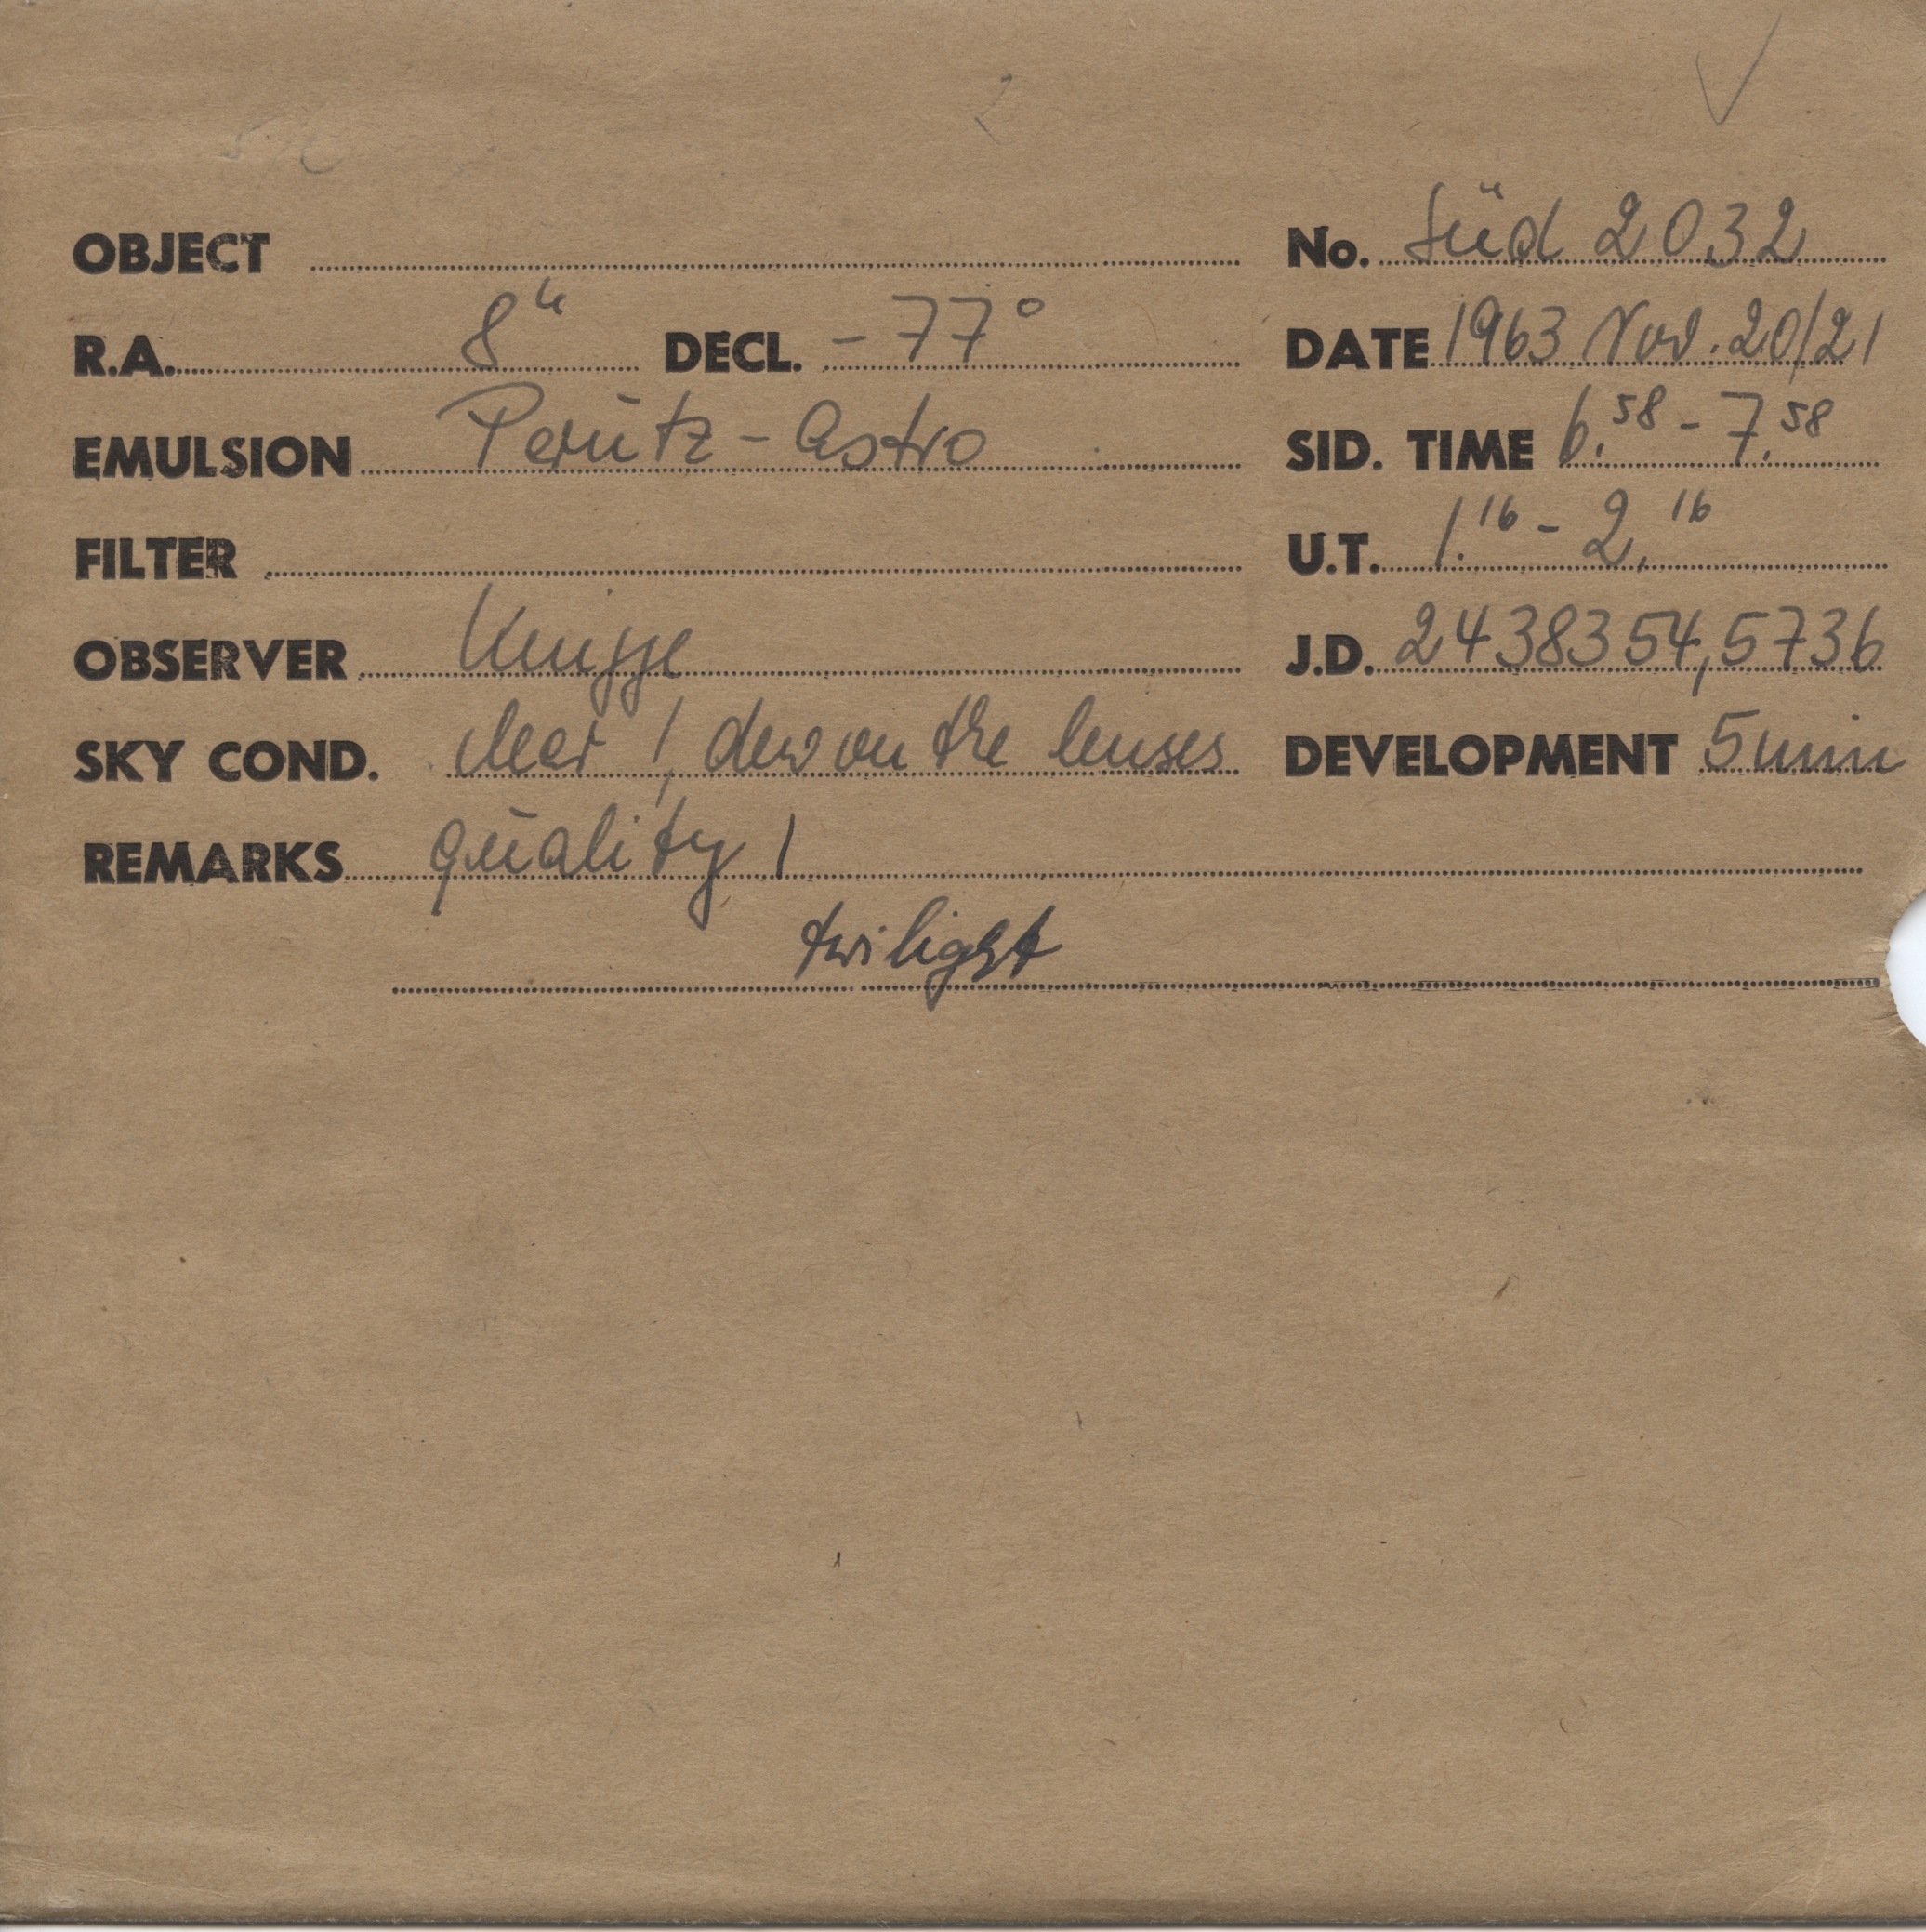 2 ✓
OBJECT No. Süd 2032
R.A. 8h DECL. -77° DATE 1963 Nov. 20/21
EMULSION Perutz-Astro SID. TIME 6.58 - 7.58
FILTER U.T. 1.16 - 2.16
OBSERVER Knigge J.D. 2438354,5736
SKY COND. clear!, dew on the lenses DEVELOPMENT 5 min
REMARKS quality 1
twilight